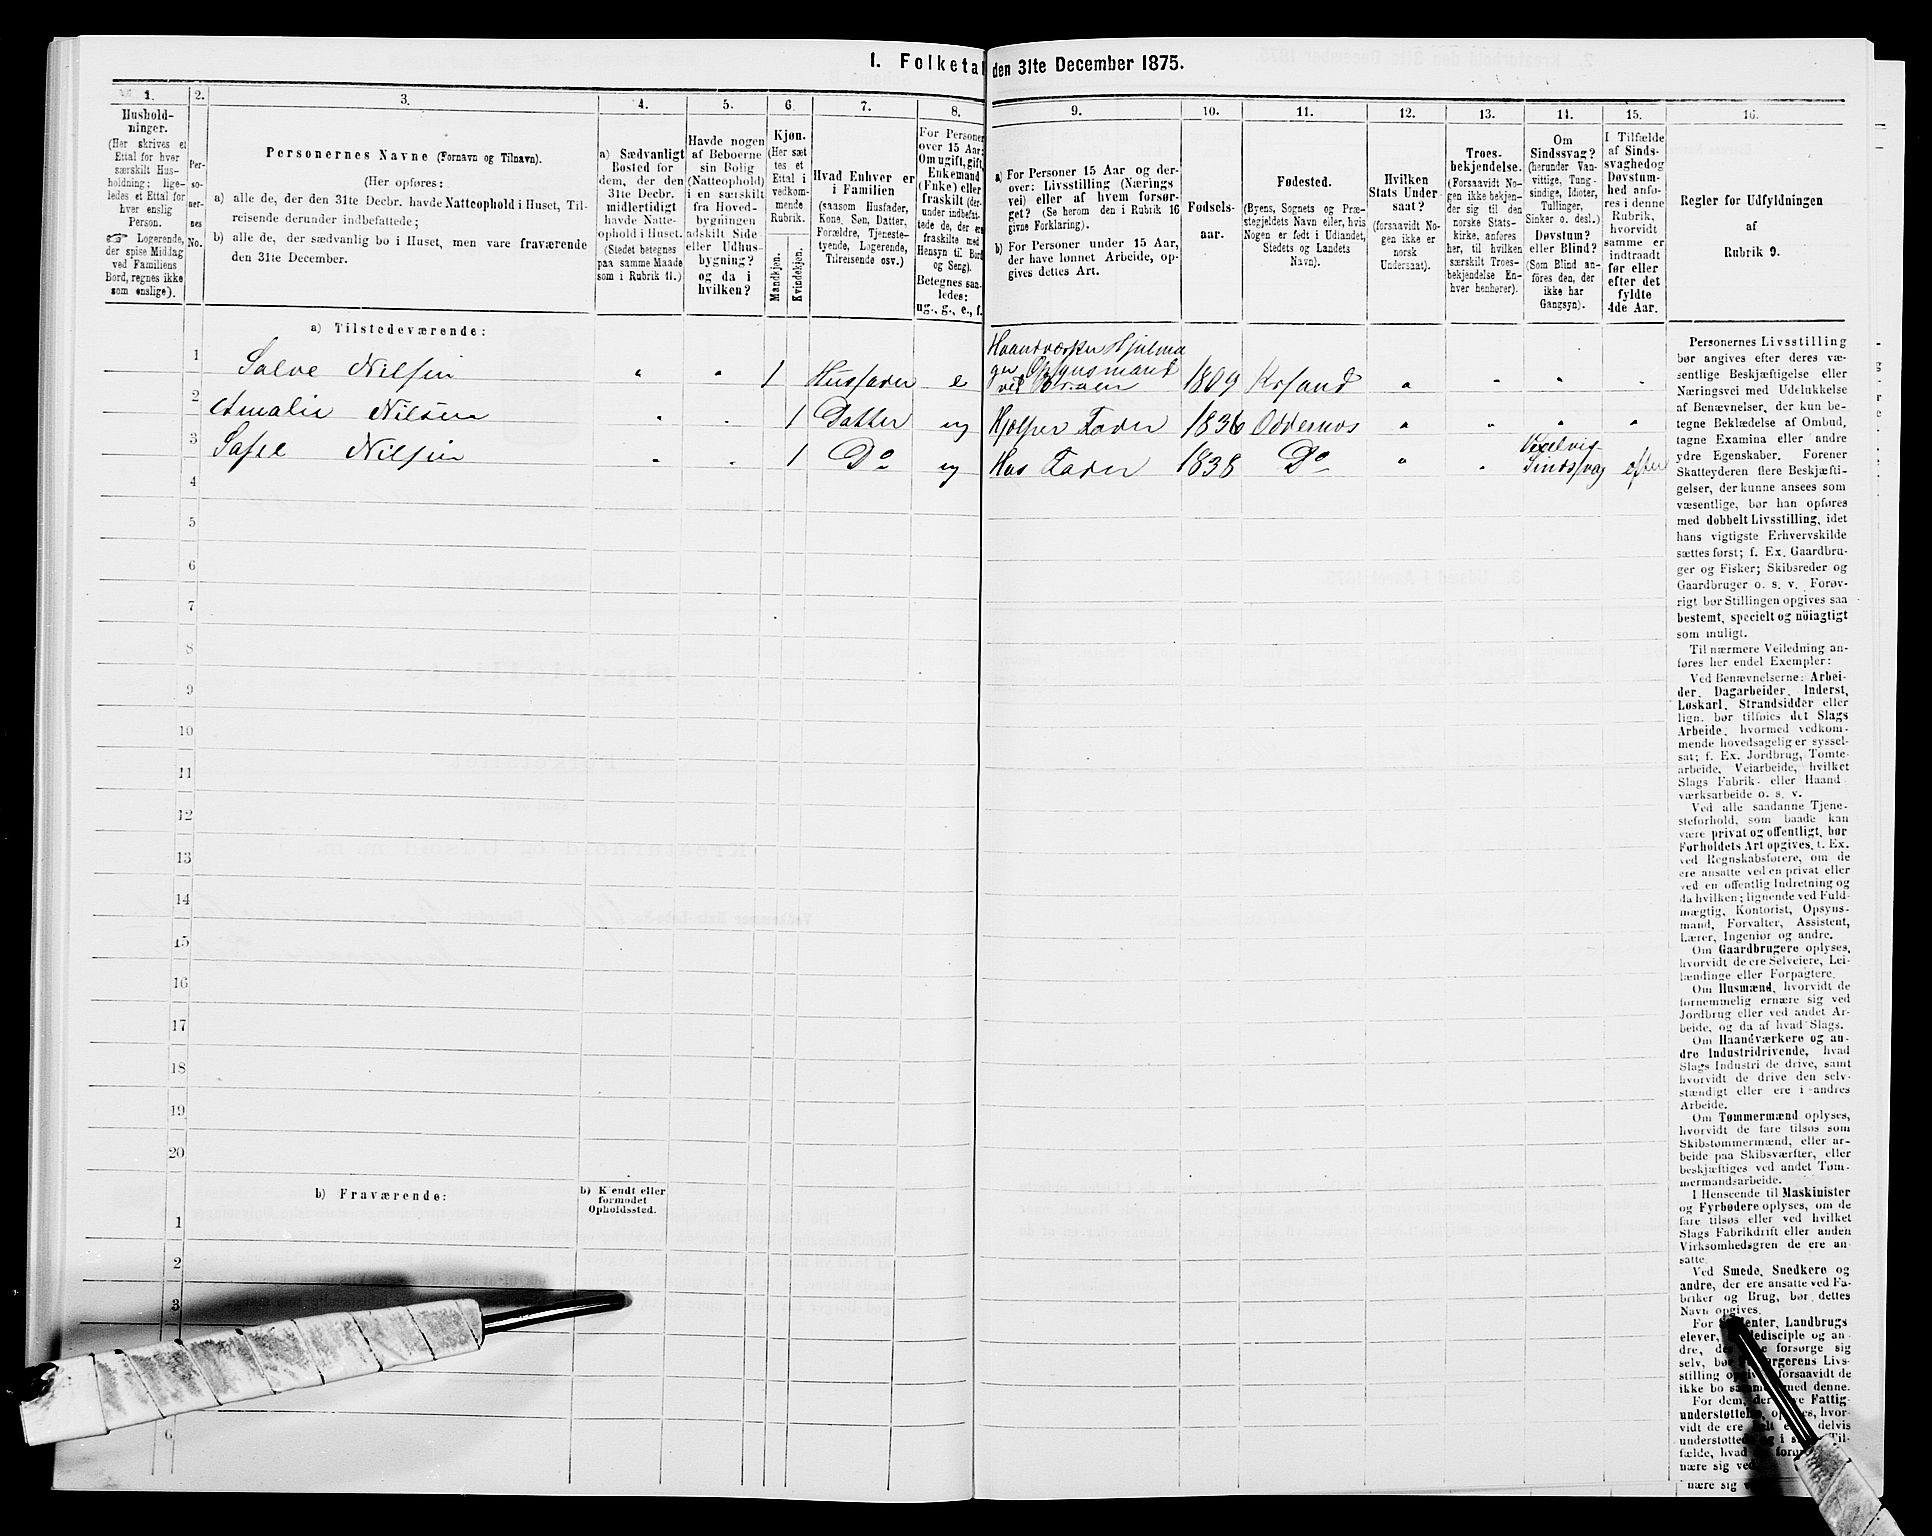 1. Folketal den 31te December 1875.
1.
Hushold-
ninger.
(Her skrives et
Ettal for hver
særskilt Hus-
holdning; lige-
ledes et Ettal for
hver enslig
Person.
Logerende,
der spise Middag
ved Familiens
Bord, regnes ikke
som enslige).
2.
Per-
so-
ner-
nes
No.
3.
Personernes Navne (Fornavn og Tilnavn).
(Her opføres:
a) alle de, der den 31te Decbr. havde Natteophold i Huset, Til-
reisende derunder indbefattede;
b) alle de, der sædvanlig bo i Huset, men vare fraværende
den 31te December.
4.
a) Sædvanligt
Bosted for
dem, der den
31te Decbr.
midlertidigt
havde Natte-
ophold i Huset.
(Stedet betegnes
paa samme Maade
som i Rubrik 11.)
5.
Havde nogen
af Beboerne
sin Bolig
(Natteophold)
i en særskilt
fra Hoved-
bygningen
adskilt Side-
eller Udhus-
bygning?
og da i
hvilken?
6.
Kjøn.
(Her sæt
tes et
Ettal i
vedkom-
mende
Rubrik.
Mandkjøn.
Kvindekjøn.
7.
Hvad Enhver er
i Familien
(saasom Husfader,
Kone, Søn, Datter,
Forældre, Tjeneste-
tyende, Logerende,
Tilreisende osv.)
8.
For Personer
over 15 Aar:
Om ugift, gift,
Enkemand
(Enke) eller
fraskilt (der-
under indbefat-
tede de, der ere
fraskilte med
Hensyn til Bord
og Seng).
Betegnes saa-
ledes:
ug., g., e., f.
9.
a) For Personer 15 Aar og der-
over: Livsstilling (Nærings
vei) eller af hvem forsør-
get? (Se herom den i Rubrik 16
givne Forklaring).
b) For Personer under 15 Aar,
der have lønnet Arbeide, op-
gives dettes Art.
10.
Fødsels-
aar.
11.
Fødested.
(Byens, Sognets og Præ-
stegjeldets Navn eller, hvis
Nogen er født i Udlandet,
Stedets og Landets
Navn).
12.
Hvilken
Stats Under
saat?
(forsaavidt No-
gen ikke er
norsk
Undersaat).
13.
Troes-
bekjendelse.
(Forsaavidt No-
gen ikke bekjen-
der sig til den
norske Stats-
kirke, anføres
her, til hvilken
særskilt Troes-
bekjendelse En-
hver henhører).
14.
Om
Sindssvag?
(herunder Van-
vittige, Tung-
sindige, Idioter,
Tullinger,
Sinker o. desl.)
Døvstum?
eller Blind?
(Som Blind an-
føres den, der
ikke har
Gangsyn).
15.
I Tilfælde
af Sinds-
svaghed og
Døvstum-
hed anfø-
res i denne
Rubrik,
hvorvidt
samme er
indtraadt
før eller
efter det
fyldte
4de Aar.
16.
Regler for Udfyldningen
af
Rubrik 9.
a) Tilstedeværende:
1 Salve Nilsen " " 1 Husfader e Haandværker Hjulma
ger Opsynsmand
ved Broen 1809 Krsand " " " "
2 Amalie Nilsen " " 1 Datter ug Hjælper Fader 1836 Oddernes " " " "
3 Nilsen " " 1 Do ug Hos Fader 1838 Do " " Sindssvag efter
4
5
6
7
8
9
10
11
12
13
14
15
16
17
18
19
20
b) Fraværende:
b) Kjendt eller
formodet
Opholdssted.
1
2
3
6
Personernes Livsstilling
bør angives efter deres væ-
sentlige Beskjæftigelse eller
Næringsvei med Udelukkelse
af Benævnelser, der kun be-
tegne Beklædelse af Ombud,
tagne Examina eller andre
ydre Egenskaber. Forener
Skatteyderen flere Beskjæfti-
gelser, der kunne ansees som
væsentlige, bør han opføres
med dobbelt Livsstilling, idet
hans vigtigste Erhvervskilde
sættes først; f. Ex. Gaardbru-
ger og Fisker; Skibsreder og
Gaardbruger o. s. v. Forøv-
rigt bør Stillingen opgives saa
bestemt, specielt og nöiagtigt
som muligt.
Til nærmere Veiledning an-
føres her endel Exempler:
Ved Benævnelserne: Arbei-
der, Dagarbeider, Inderst,
Løskarl, Strandsidder eller
lign. bør tilføies det Slags
Arbeide, hvormed vedkom-
mende hovedsagelig er syssel-
sat; f. Ex. Jordbrug, Tomte-
arbeide, Veiarbeide, hvilket
Slags Fabrik- eller Haand-
værksarbeide o. s. v.
Ved alle saadanne Tjene-
steforhold, som baade kan
være privat og offentligt, bør
Forholdets Art opgives, t. Ex.
ved Regnskabsførere, om de
ere ansatte ved en privat eller
ved en offentlig Indretning og
da hvilken; lignende ved Fuld-
mægtig, Kontorist, Opsyns-
mand, Forvalter, Assistent,
Lærer, Ingeniør og andre.
Om Gaardbrugere oplyses,
hvorvidt de ere Selveiere, Lei-
lændinge eller Forpagtere.
Om Husmænd, hvorvidt de
fornemmelig ernære sig ved
Jordbrug eller ved andet Ar-
beide, og da af hvad Slags.
Om Haandværkere og an-
dre Industridrivende, hvad
Slags Industri de drive, samt
hvorvidt de drive den selv-
stændigt eller ere i andres
Arbeide.
Om Tømmermænd oplyses,
hvorvidt de fare tilsøs som
Skibstømmermænd, eller ar-
beide paa Skibsværfter, eller
beskjæftiges ved andet Tøm-
mermandsarbeide.
I Henseende til Maskinister
og Fyrbødere oplyses, om de
fare tilsøs eller ved hvilket
Slags Fabrikdrift eller anden
Virksomhedsgren de ere an-
satte.
Ved Smede, Snedkere og
andre, der ere ansatte ved Fa-
briker og Brug, bør dettes
Navn opgives.
For Landbrugs
elever, og an-
dre, forsørge sig
selv, bør Livs-
stilling forsaavidt de
ikke bo med denne.
For dem, Fattig-
understøttelse, hvor-
vidt de ere delvis
understøttede og i Til-
fælde, hvad
nære sig ved
nære sig v